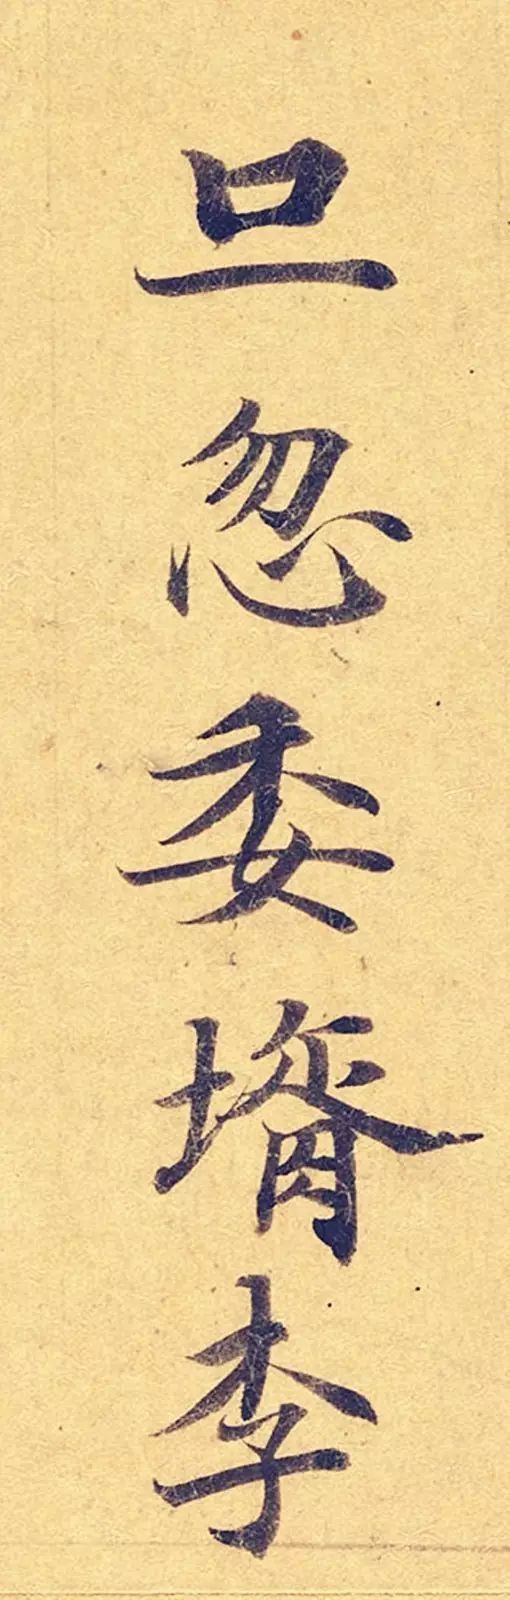 旦忽委壻李